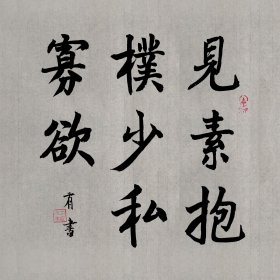 見素抱
樸少私
寡欲
有書